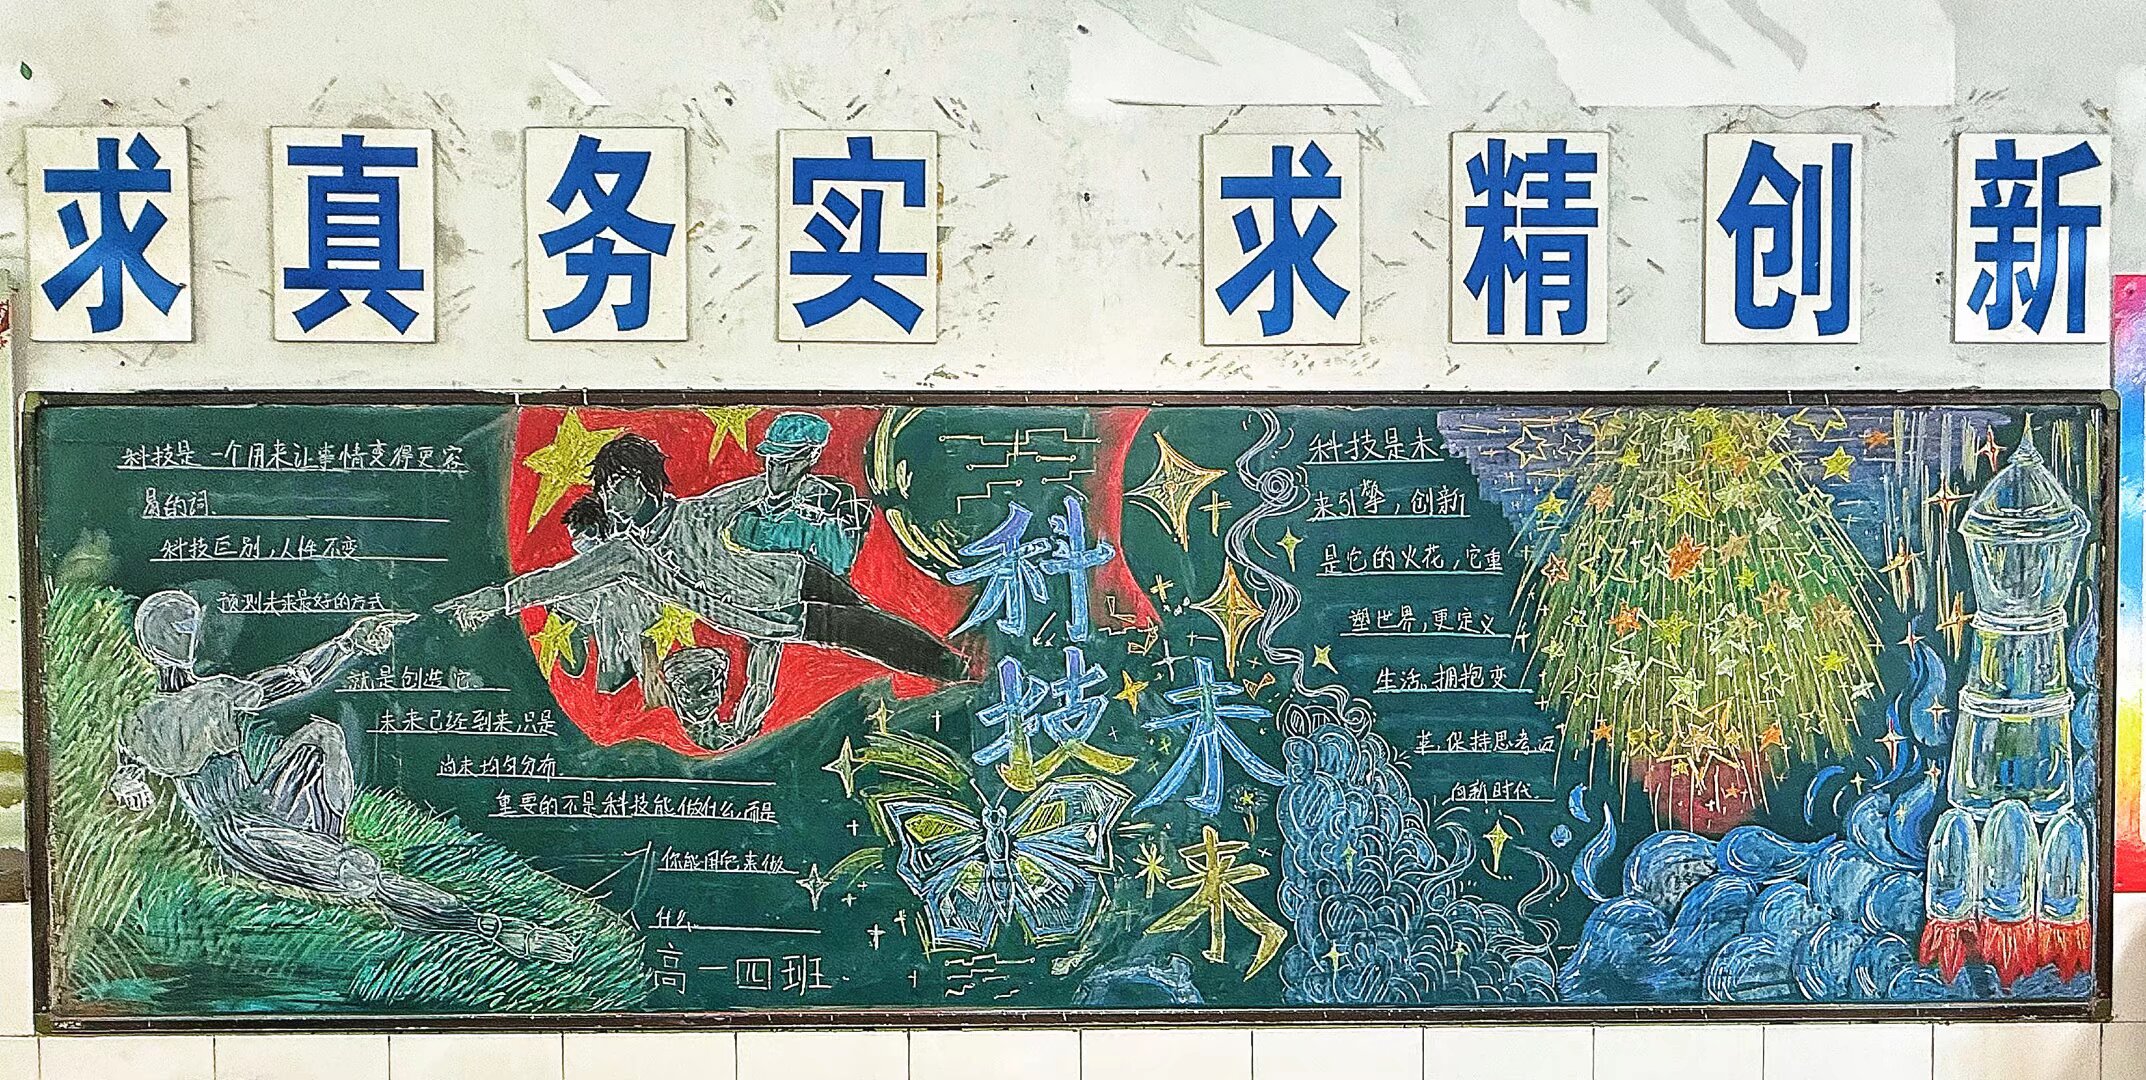 求真务实 求精创新
科技是一个用来让事情变得更容
易的词.
科技巨别,人性不变
预测未来最好的方式
就是创造它.
未来已经到来,只是
尚未均匀分布.
重要的不是科技能做什么,而是
你能用它来做
什么.
高一四班.
科技
未来
科技是未
来引擎,创新
是它的火花,它重
塑世界,更定义
生活。拥抱变
革,保持思考,迈
向新时代.